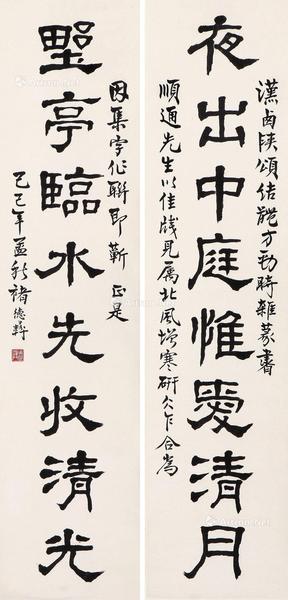 夜出中庭惟愛清月
漢卤陝頌結體方勁時雜篆書
順通先生以佳牋見屬北風增寒研欠乍合為
野亭臨水先收清光
因集字作聯即蘄 正是
乙巳年孟秋褚德彝